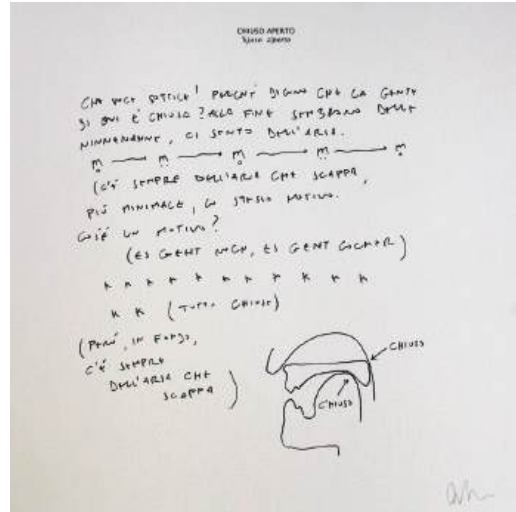 CHIUSO APERTO
CHE VOCE SOTTILE! PERCHÉ DICONO CHE LA GENTE
DI QUI È CHIUSA? ALLA FINE SEMBRANO DELLE
NINNENANNE, CI SENTO DELL'ARIA.
m m m m m
(C'È SEMPRE DELL'ARIA CHE SCAPPA,
PIÙ MINIMALE, LO STESSO MOTIVO.
COS'È UN MOTIVO?
(ES GEHT NOCH, ES GEHT LOCKER)
K K K K K K K K K K K
K K (TUTTO CHIUSO)
(PERÒ, IN FONDO,
C'È SEMPRE
DELL'ARIA CHE
SCAPPA)
CHIUSO
CHIUSO